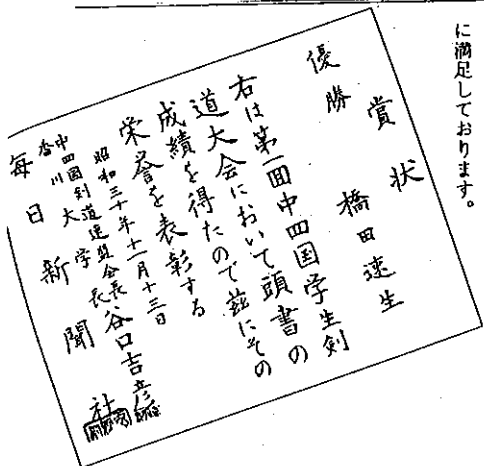 に満足しております。
賞状
優勝 橋田速生
右は第一回中四国学生剣
道大会において頭書の
成績を得たので茲にその
栄誉を表彰する
昭和三十年十一月十三日
中四国剣道連盟会長
香川大学長 谷口吉彦
毎日新聞社